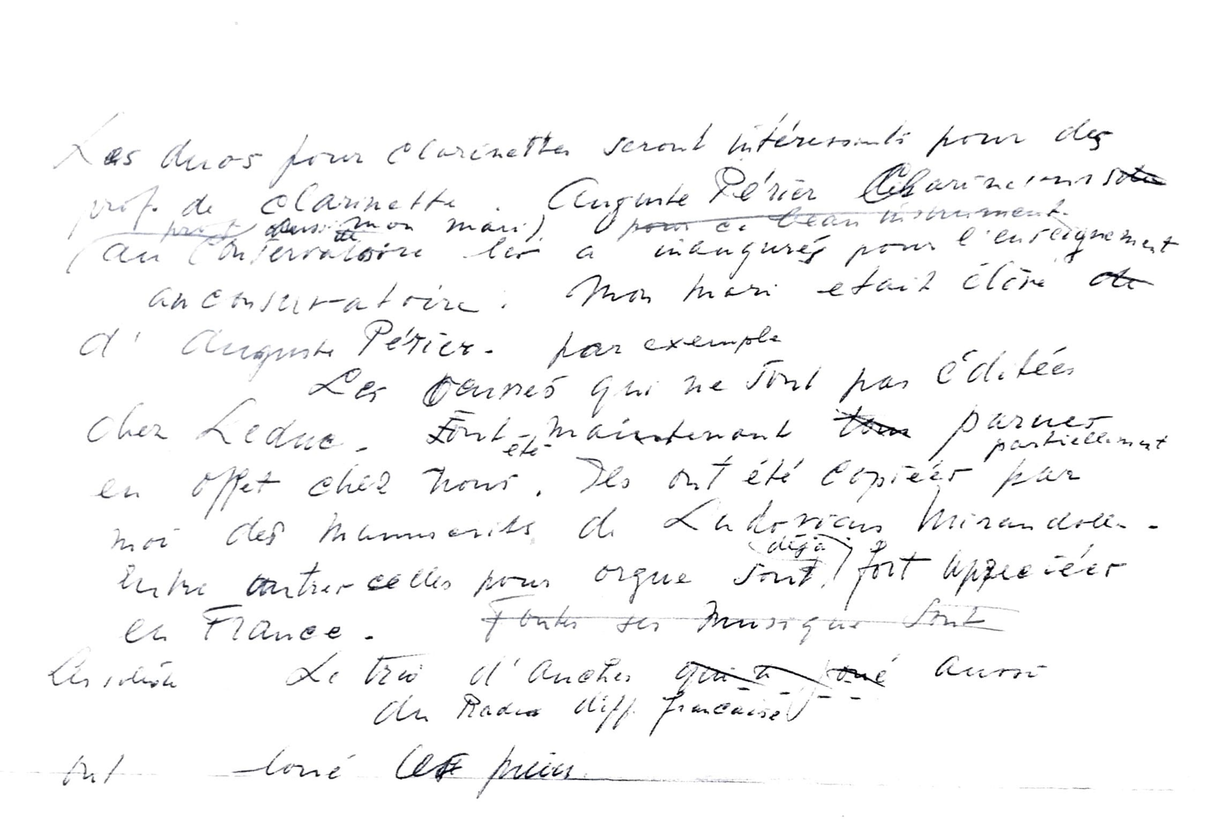 Les duos pour clarinettes seront intéressants pour des
prof. de clarinette. Auguste Périer
prof mon mari) pour ce beau instrument
(au Conservatoire les a inaugurés pour l'enseignement
au conservatoire. Mon mari etait élève de
d' Auguste Périer. par exemple
Les qui ne sont pas éditées
chez Leduc. Sont maintenant parues
été partiellement
en offset chez nous. Ils ont été copiées par
moi des manuscrits de Ludovicus Mirandolle.
déjà
Entre autres celles pour orgue sont fort appreciéer
en France. Toutes ses musique sont
Le trio d'anches qui a joué aussi
du Radio diff. française)
ont joué les pièces.